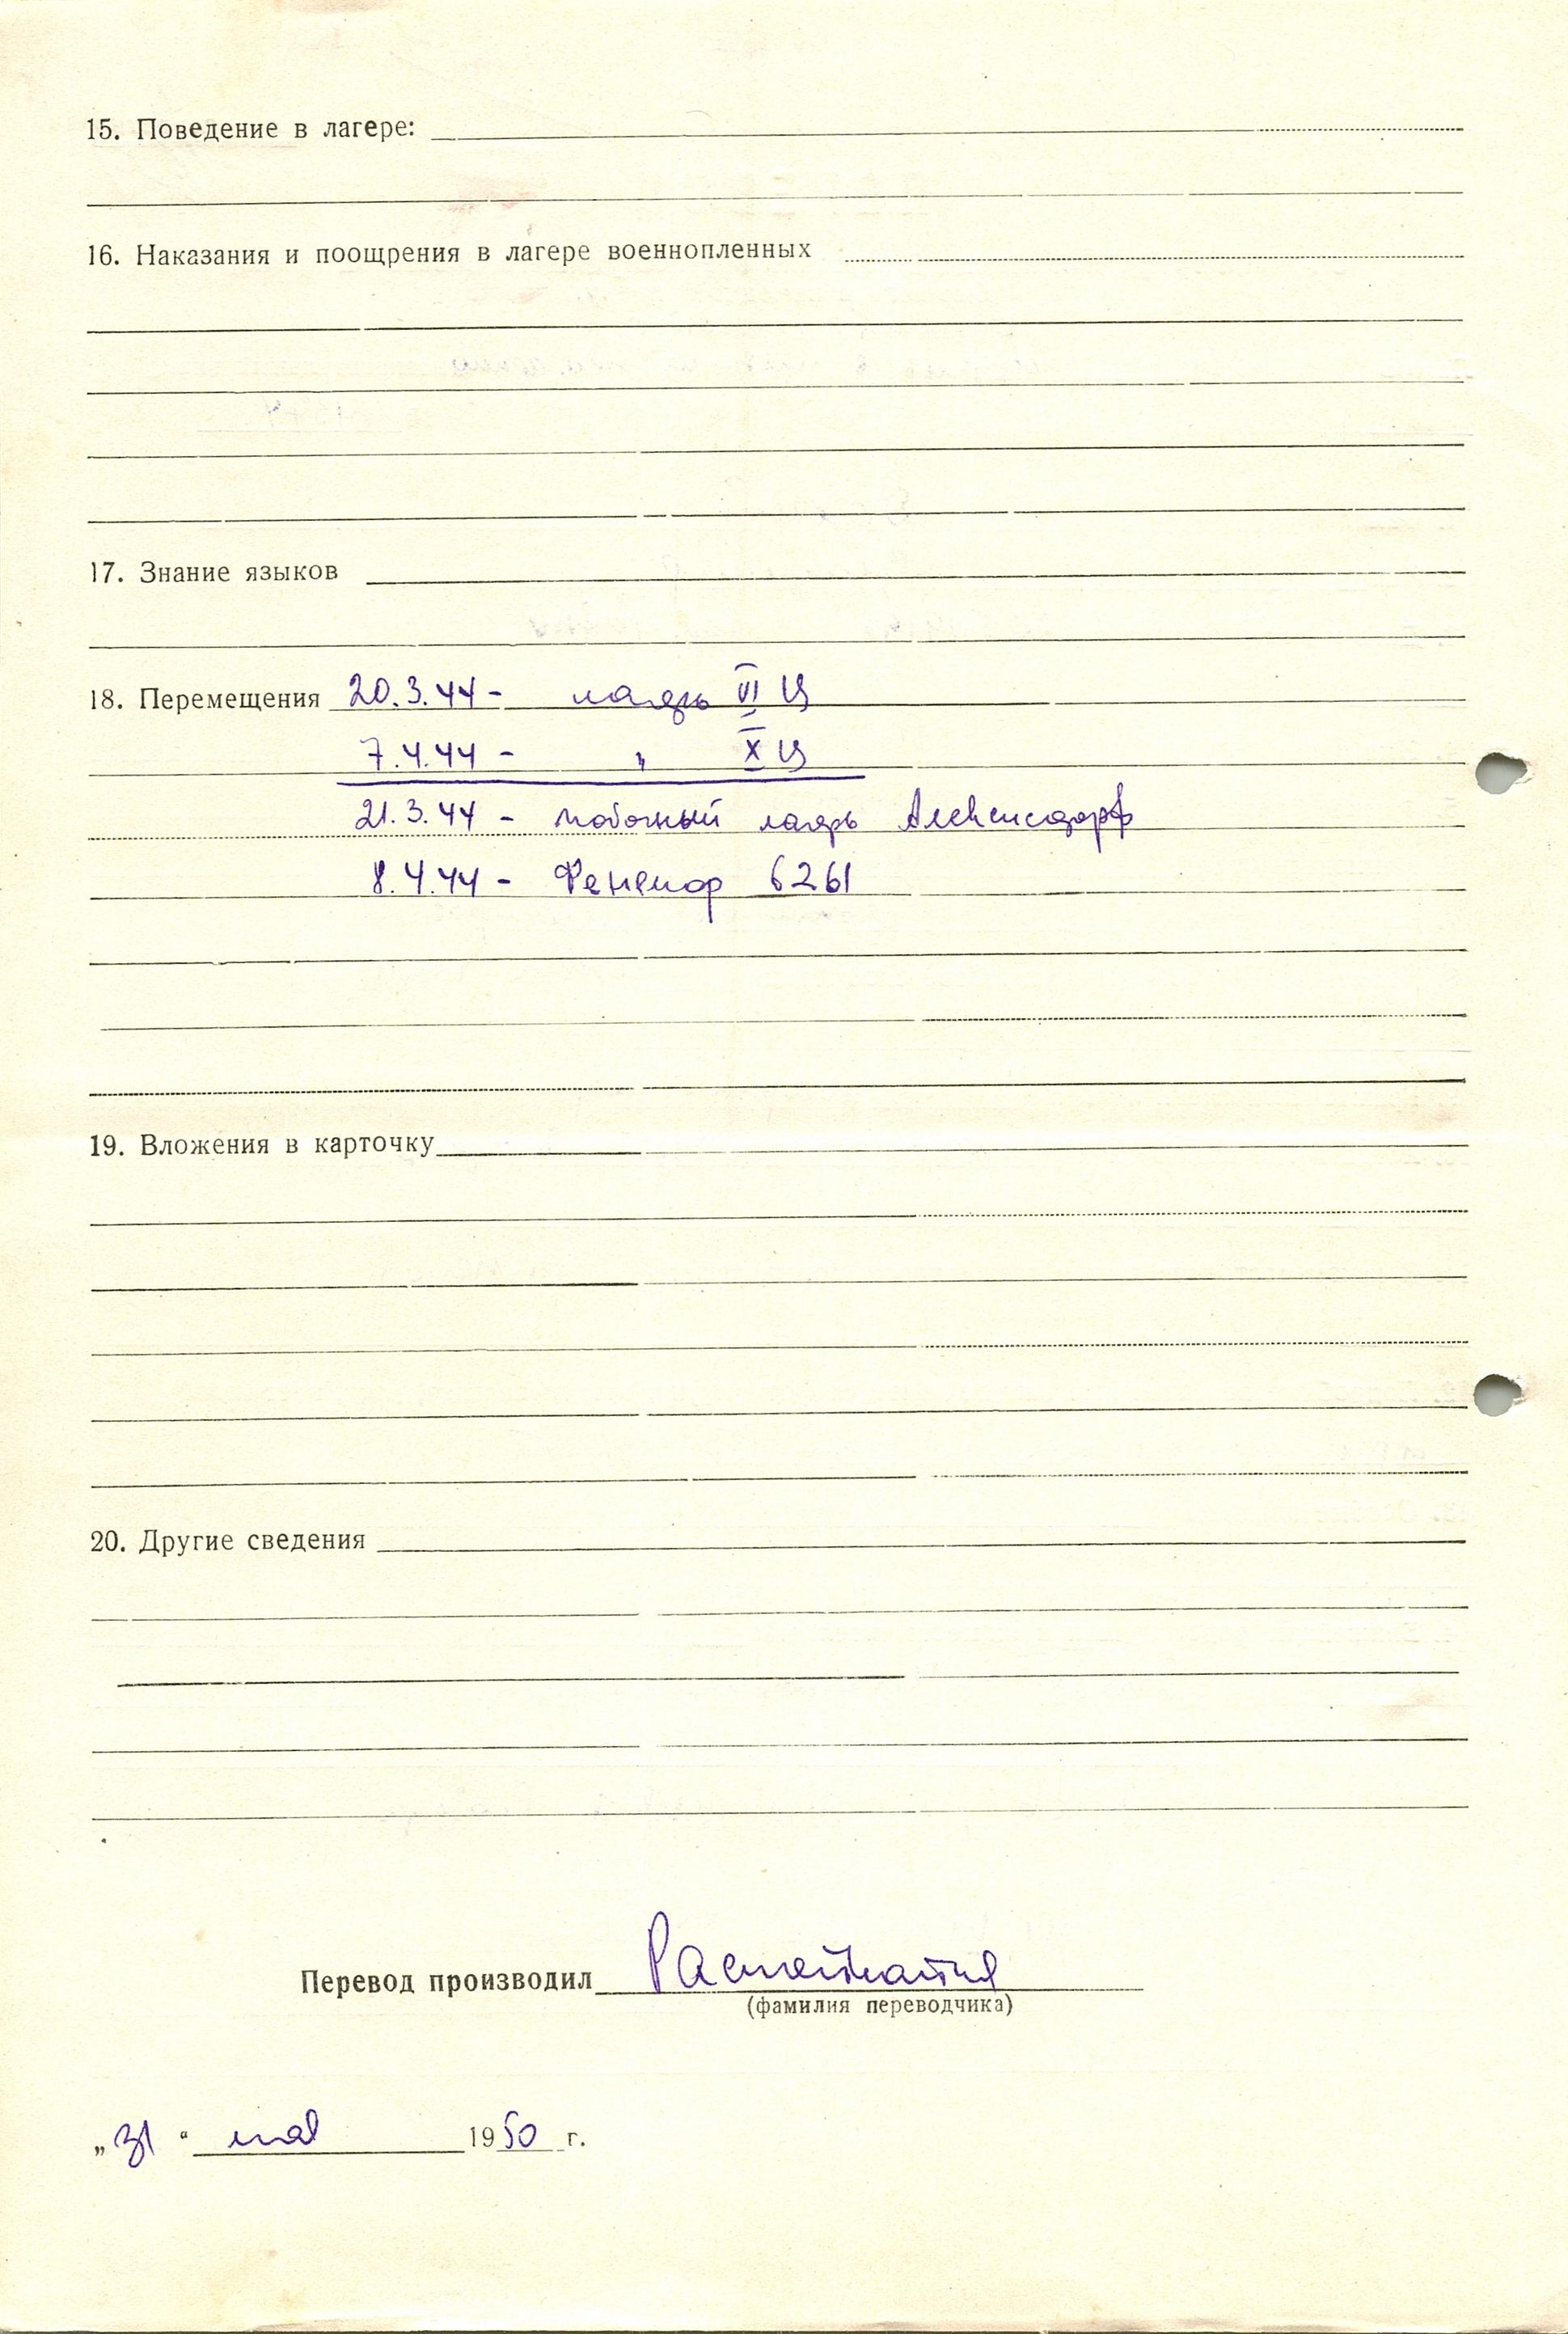 15. Поведение в лагере:
16. Наказания и поощрения в лагере военнопленных
17. Знание языков
18. Перемещения 20.3.44 - лагерь VI Ц
7.4.44 - " X Ц
21.3.44 - рабочий лагерь
8.4.44 - 6261
19. Вложения в карточку
20. Другие сведения
Перевод производил
(фамилия переводчика)
„31“ мая 1950 г.